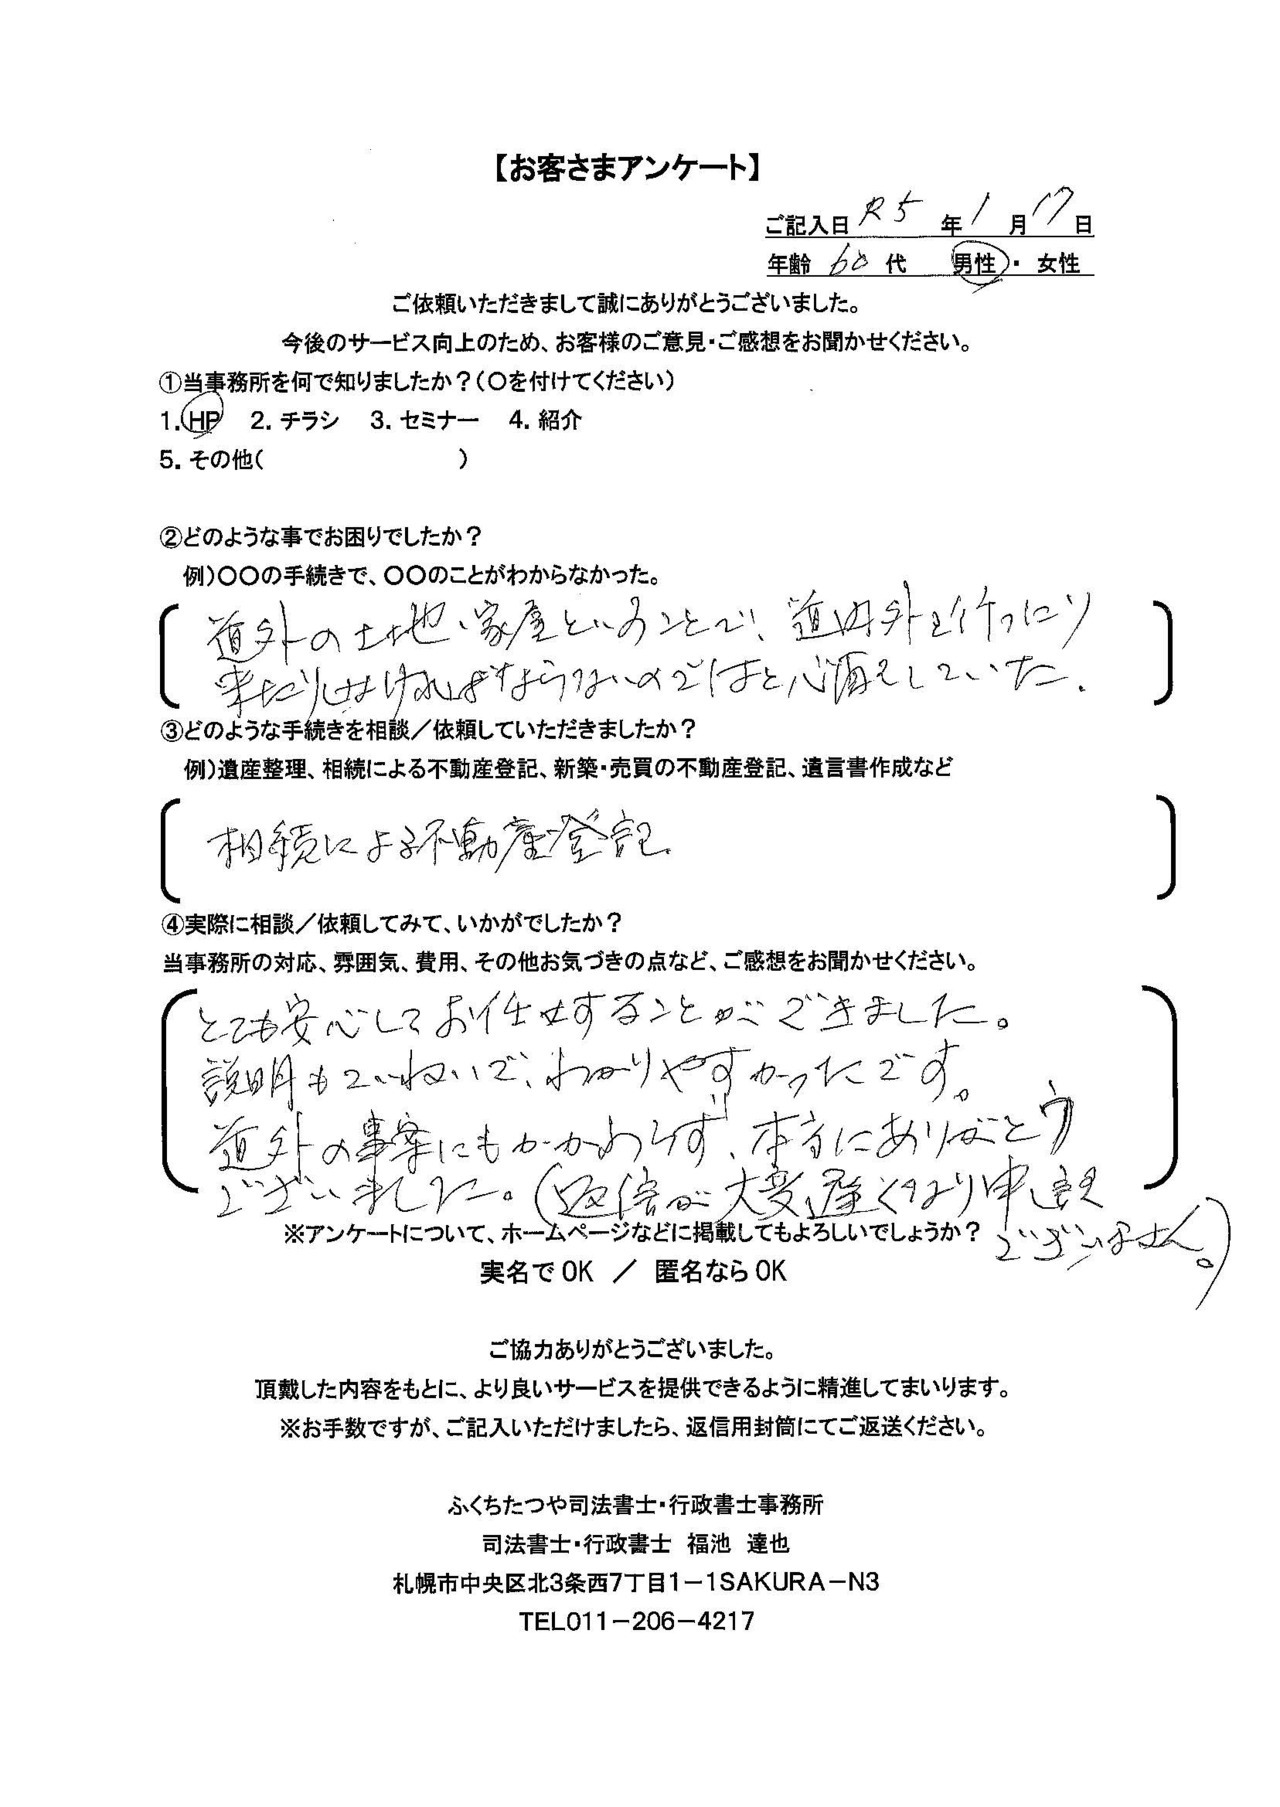 【お客さまアンケート】
ご記入日 R5 年 1 月 17 日
年齢 60 代 男性・女性
ご依頼いただきまして誠にありがとうございました。
今後のサービス向上のため、お客様のご意見・ご感想をお聞かせください。
①当事務所を何で知りましたか？（〇を付けてください）
1. HP 2. チラシ 3. セミナー 4. 紹介
5. その他( )
②どのような事でお困りでしたか？
例）〇〇の手続きで、〇〇のことがわからなかった。
道外の土地、家屋ということで、道内外を行ったり
来たりしなければならないのではと心配していた.
③どのような手続きを相談／依頼していただきましたか？
例）遺産整理、相続による不動産登記、新築・売買の不動産登記、遺言書作成など
相続による不動産登記.
④実際に相談／依頼してみて、いかがでしたか？
当事務所の対応、雰囲気、費用、その他お気づきの点など、ご感想をお聞かせください。
とても安心してお任せすることができました。
説明もていねいで、わかりやすかったです。
道外の事案にもかかわらず、本当にありがとう
ございました。（返信が大変遅くなり申し訳
ございません。）
※アンケートについて、ホームページなどに掲載してもよろしいでしょうか？
実名でOK ／ 匿名ならOK
ご協力ありがとうございました。
頂戴した内容をもとに、より良いサービスを提供できるように精進してまいります。
※お手数ですが、ご記入いただけましたら、返信用封筒にてご返送ください。
ふくちたつや司法書士・行政書士事務所
司法書士・行政書士 福池 達也
札幌市中央区北3条西7丁目1－1SAKURA－N3
TEL011－206－4217